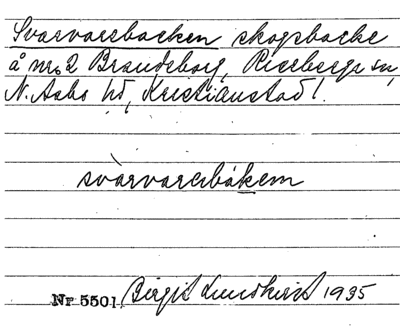 Svarvarebacken skogsbacke
å nr 2 Brandeborg, Riseberga sn,
N. Åsbo hd, Kristianstad l.
svarvarebákem
Nr 5501. Birgit Lundkvist 1935